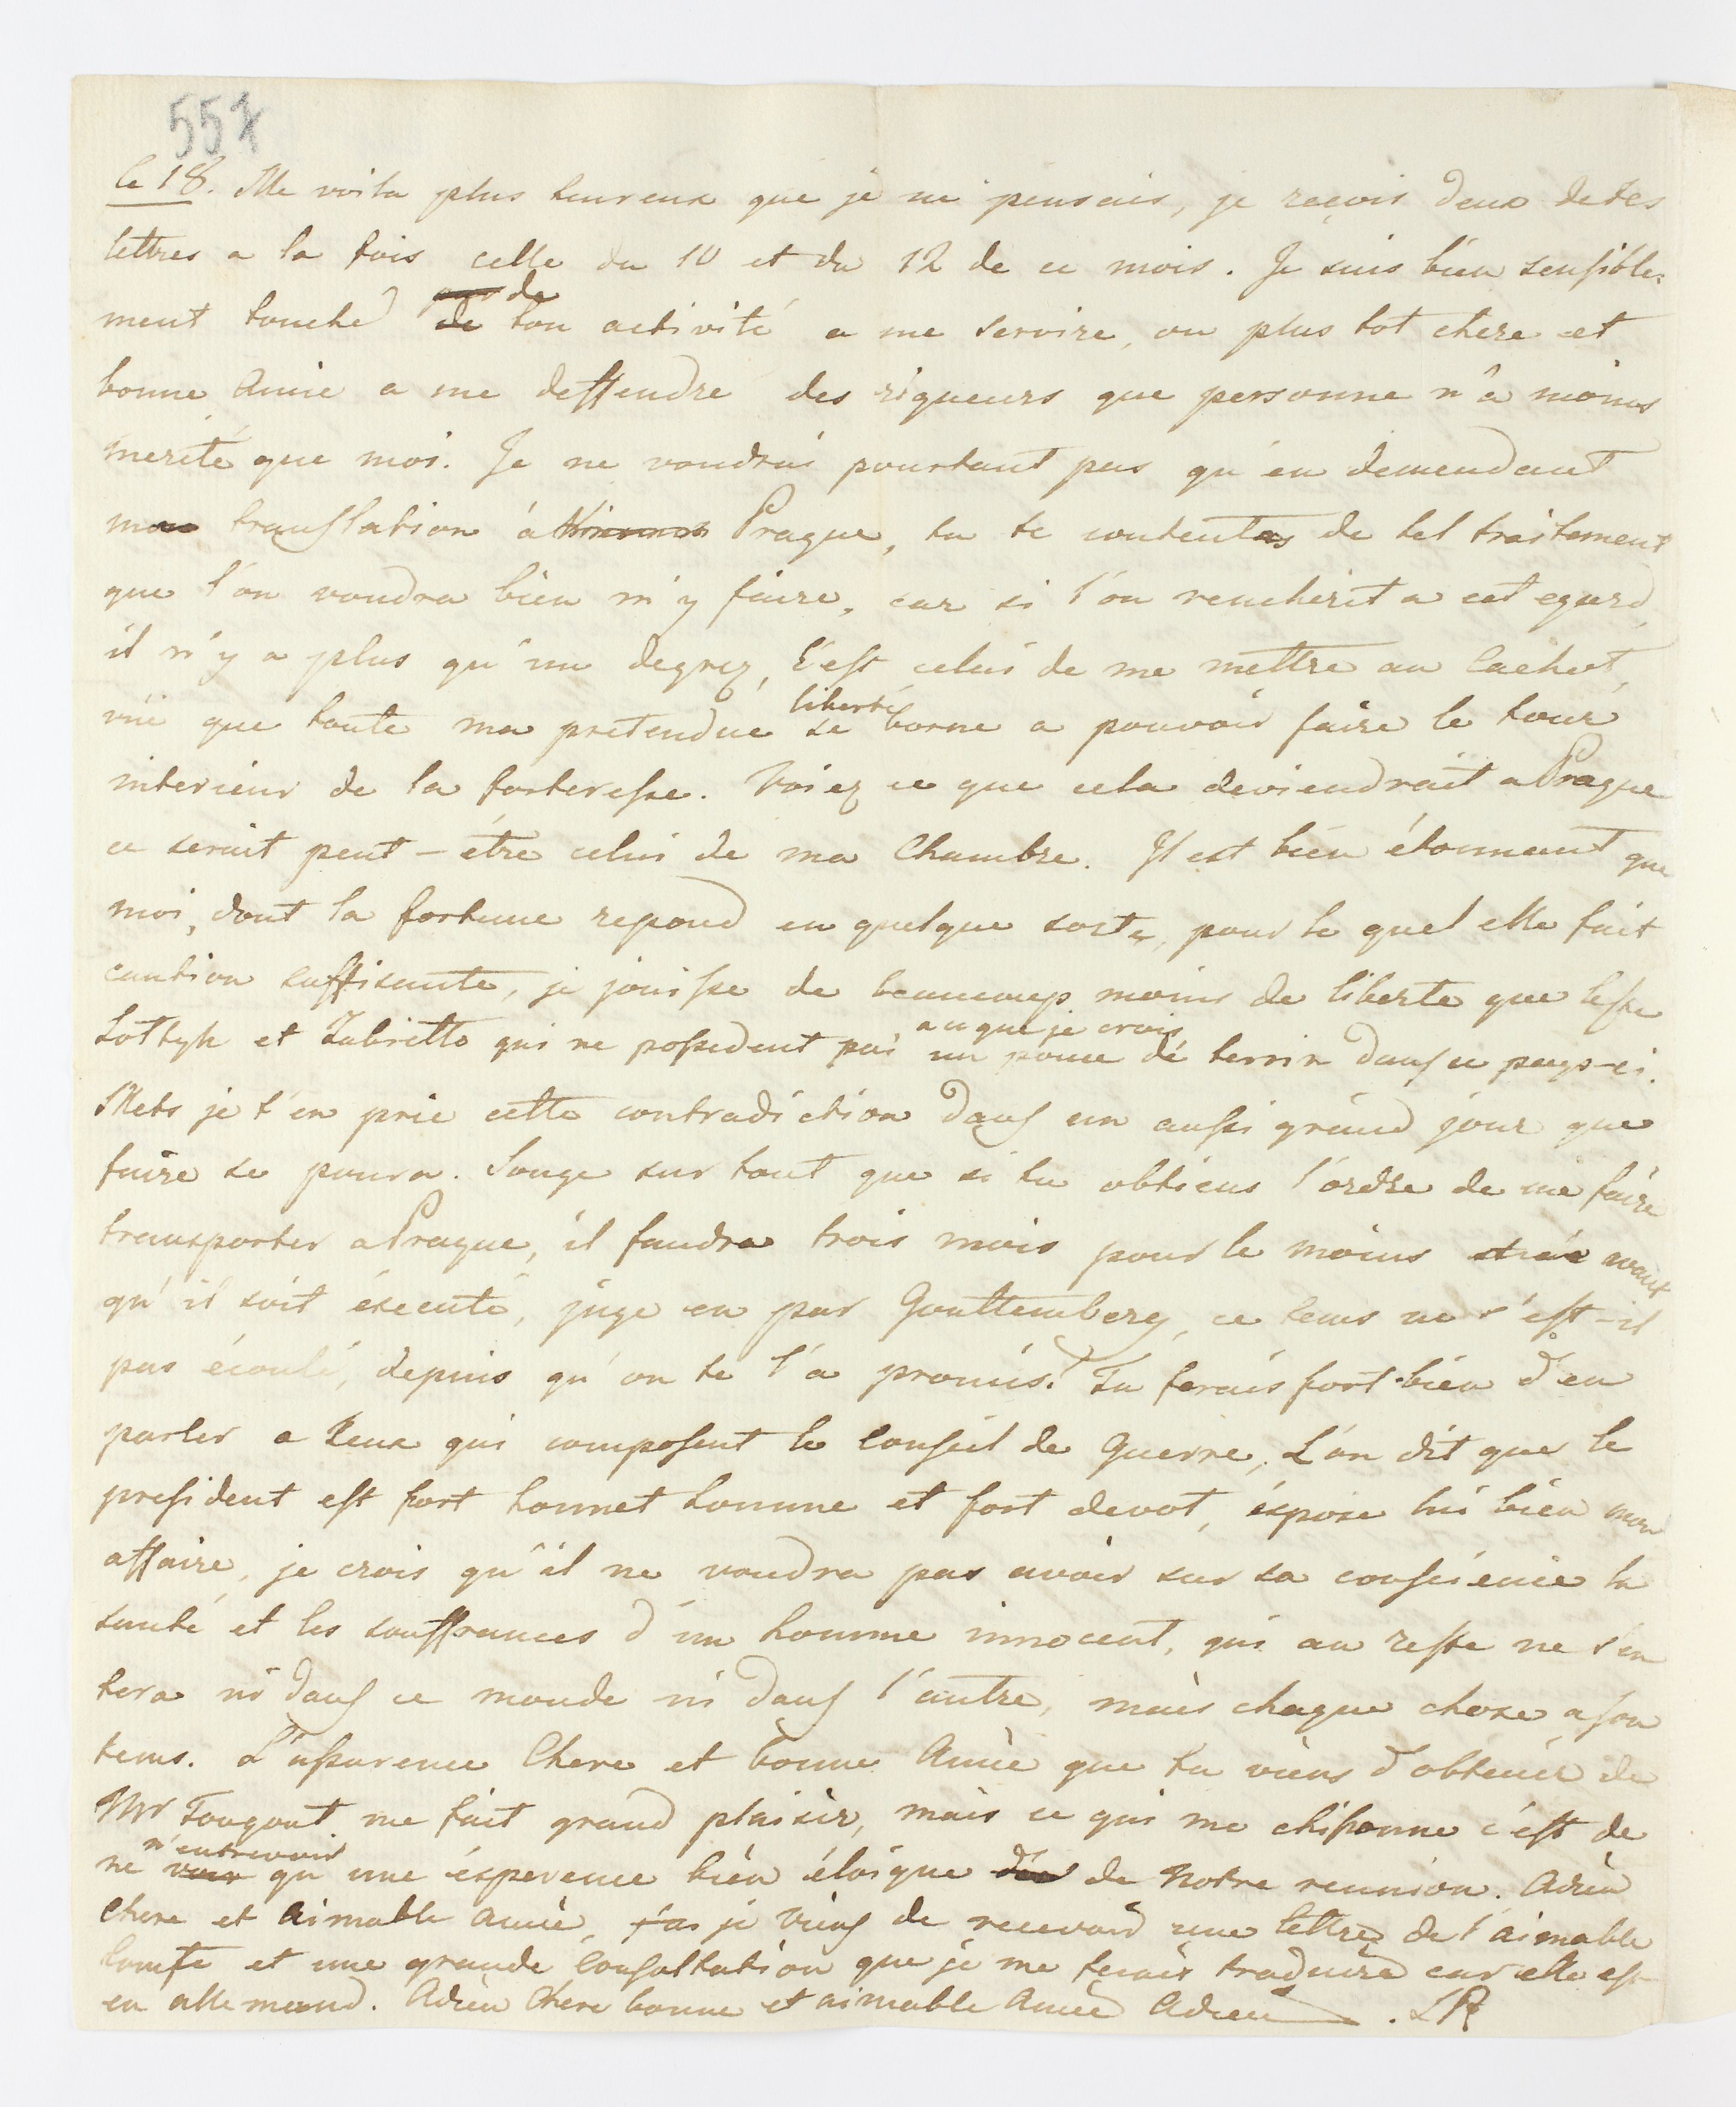 557
le 18. Me voila plus heureux que je ne pensais, je reçois deux de tes
lettres a la fois celle du 10 et du 12 de ce mois. Je suis bien sensible-
ment touché de ton activité a me servire, ou plus tot chere et
bonne Amie a me deffendre des rigueurs que personne n'a moins
merité que moi. Je ne voudrai pourtant pas qu'en demendant
ma translation á Prague, tu te contentas de tel traitement
que l'on voudra bien m'y faire, car si l'on rencherit a cet egard,
il n'y a plus qu'un degrez, C'est celui de me mettre au Cachot,
vüe que toute ma pretendue liberté se borne a pouvoir faire le tour
interieur de la forteresse. Voiez ce que cela deviendrait a Prague
ce serait peut-etre celui de ma Chambre. Il est bien étonnant que
moi, dont la fortune repond en quelque sorte, pour le quel elle fait
caution suffisante, je jouisse de beaucoup moins de liberte que
et qui ne possedent pas a ce que je crois un pouce de terrin dans ce pays-ci.
Mets je t'en prie cette contradiction dans un aussi grand jour que
faire se poura. Songe sur tout que si tu obtiens l'ordre de me faire
transporter a Prague, il faudra trois mois pour le moins avant
qu'il soit éxecuté, juge en par Gouttemberg, ce tems ne s'est-il
pas écoulé, depuis qu'on te l'a promis? Tu ferais fort bien d'en
parler a Ceux qui composent le Conseil de Guerre, L'on dit que le
president est fort honnet homme et fort devot, éxpose lui bien mon
affaire, je crois qu'il ne voudra pas avoir sur sa conscience la
santé et les souffrances d'un homme innocent, qui au reste ne s'en
tera ni dans ce monde ni dans l'autre, mais chaque chose a son
tems. L'assurence Chere et bonne Amie que tu viens d'obtenir de
Mr Tougout me fait grand plaisir, mais ce qui me chifonne c'est de
n'entrevoir qu'une ésperence bien éloigne de Notre reunion. Adieu
Chere et Aimable amie, je viens de recevoir une lettre de l'aimable
Comte et une grande Consultation que je me ferais traduire car elle est
en allemand. Adieu Chere bonne et aimable Amie Adieu. LR